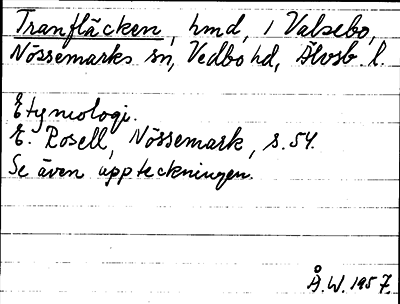 Tranfläcken, hmd, i Valsebo,
Nössemarks sn, Vedbo hd, Älvsb. l.
Etymologi.
E. Rosell, Nössemark, s. 54.
Se även uppteckningen.
Å.W. 1957.